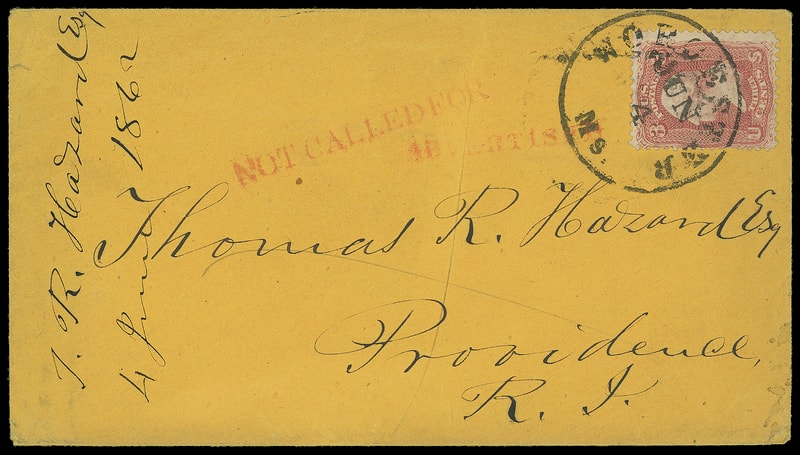 T. R. Hazard Esq
4 June 1862
WORCESTER
JUN
4
Ms.
U S
3 CENTS
NOT CALLED FOR
ADVERTISED
Thomas R. Hazard Esq
Providence,
R. I.